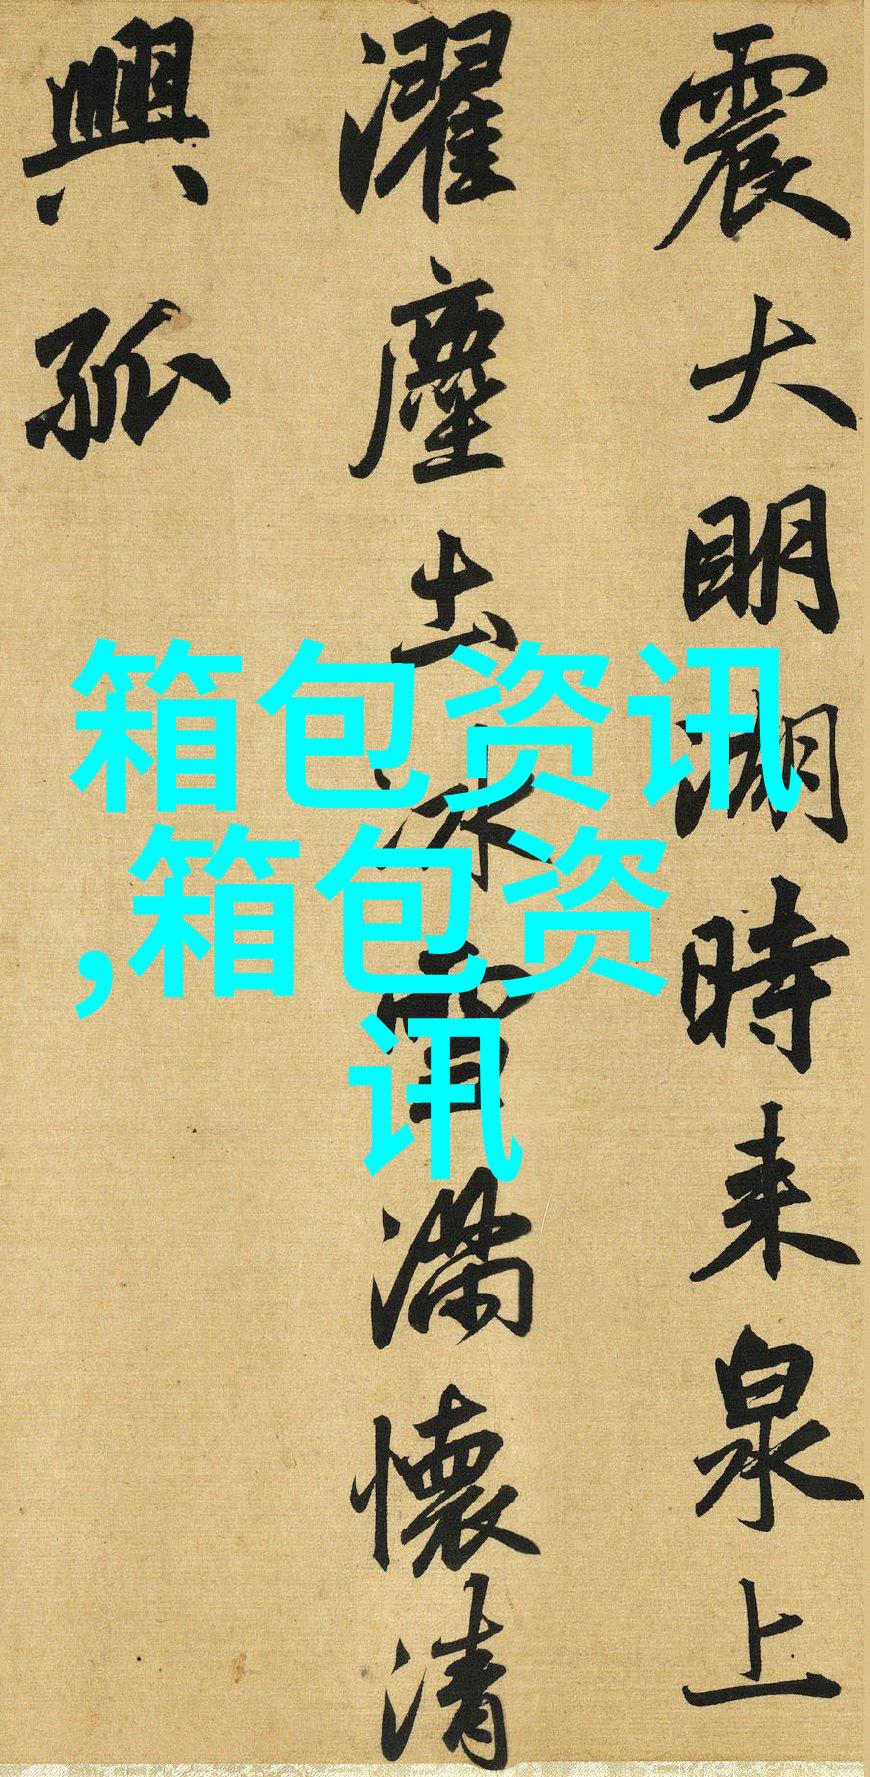 震大明湖時来泉上
濯塵土冰雪滿懷清
興孤
箱包资讯
,箱包资
讯